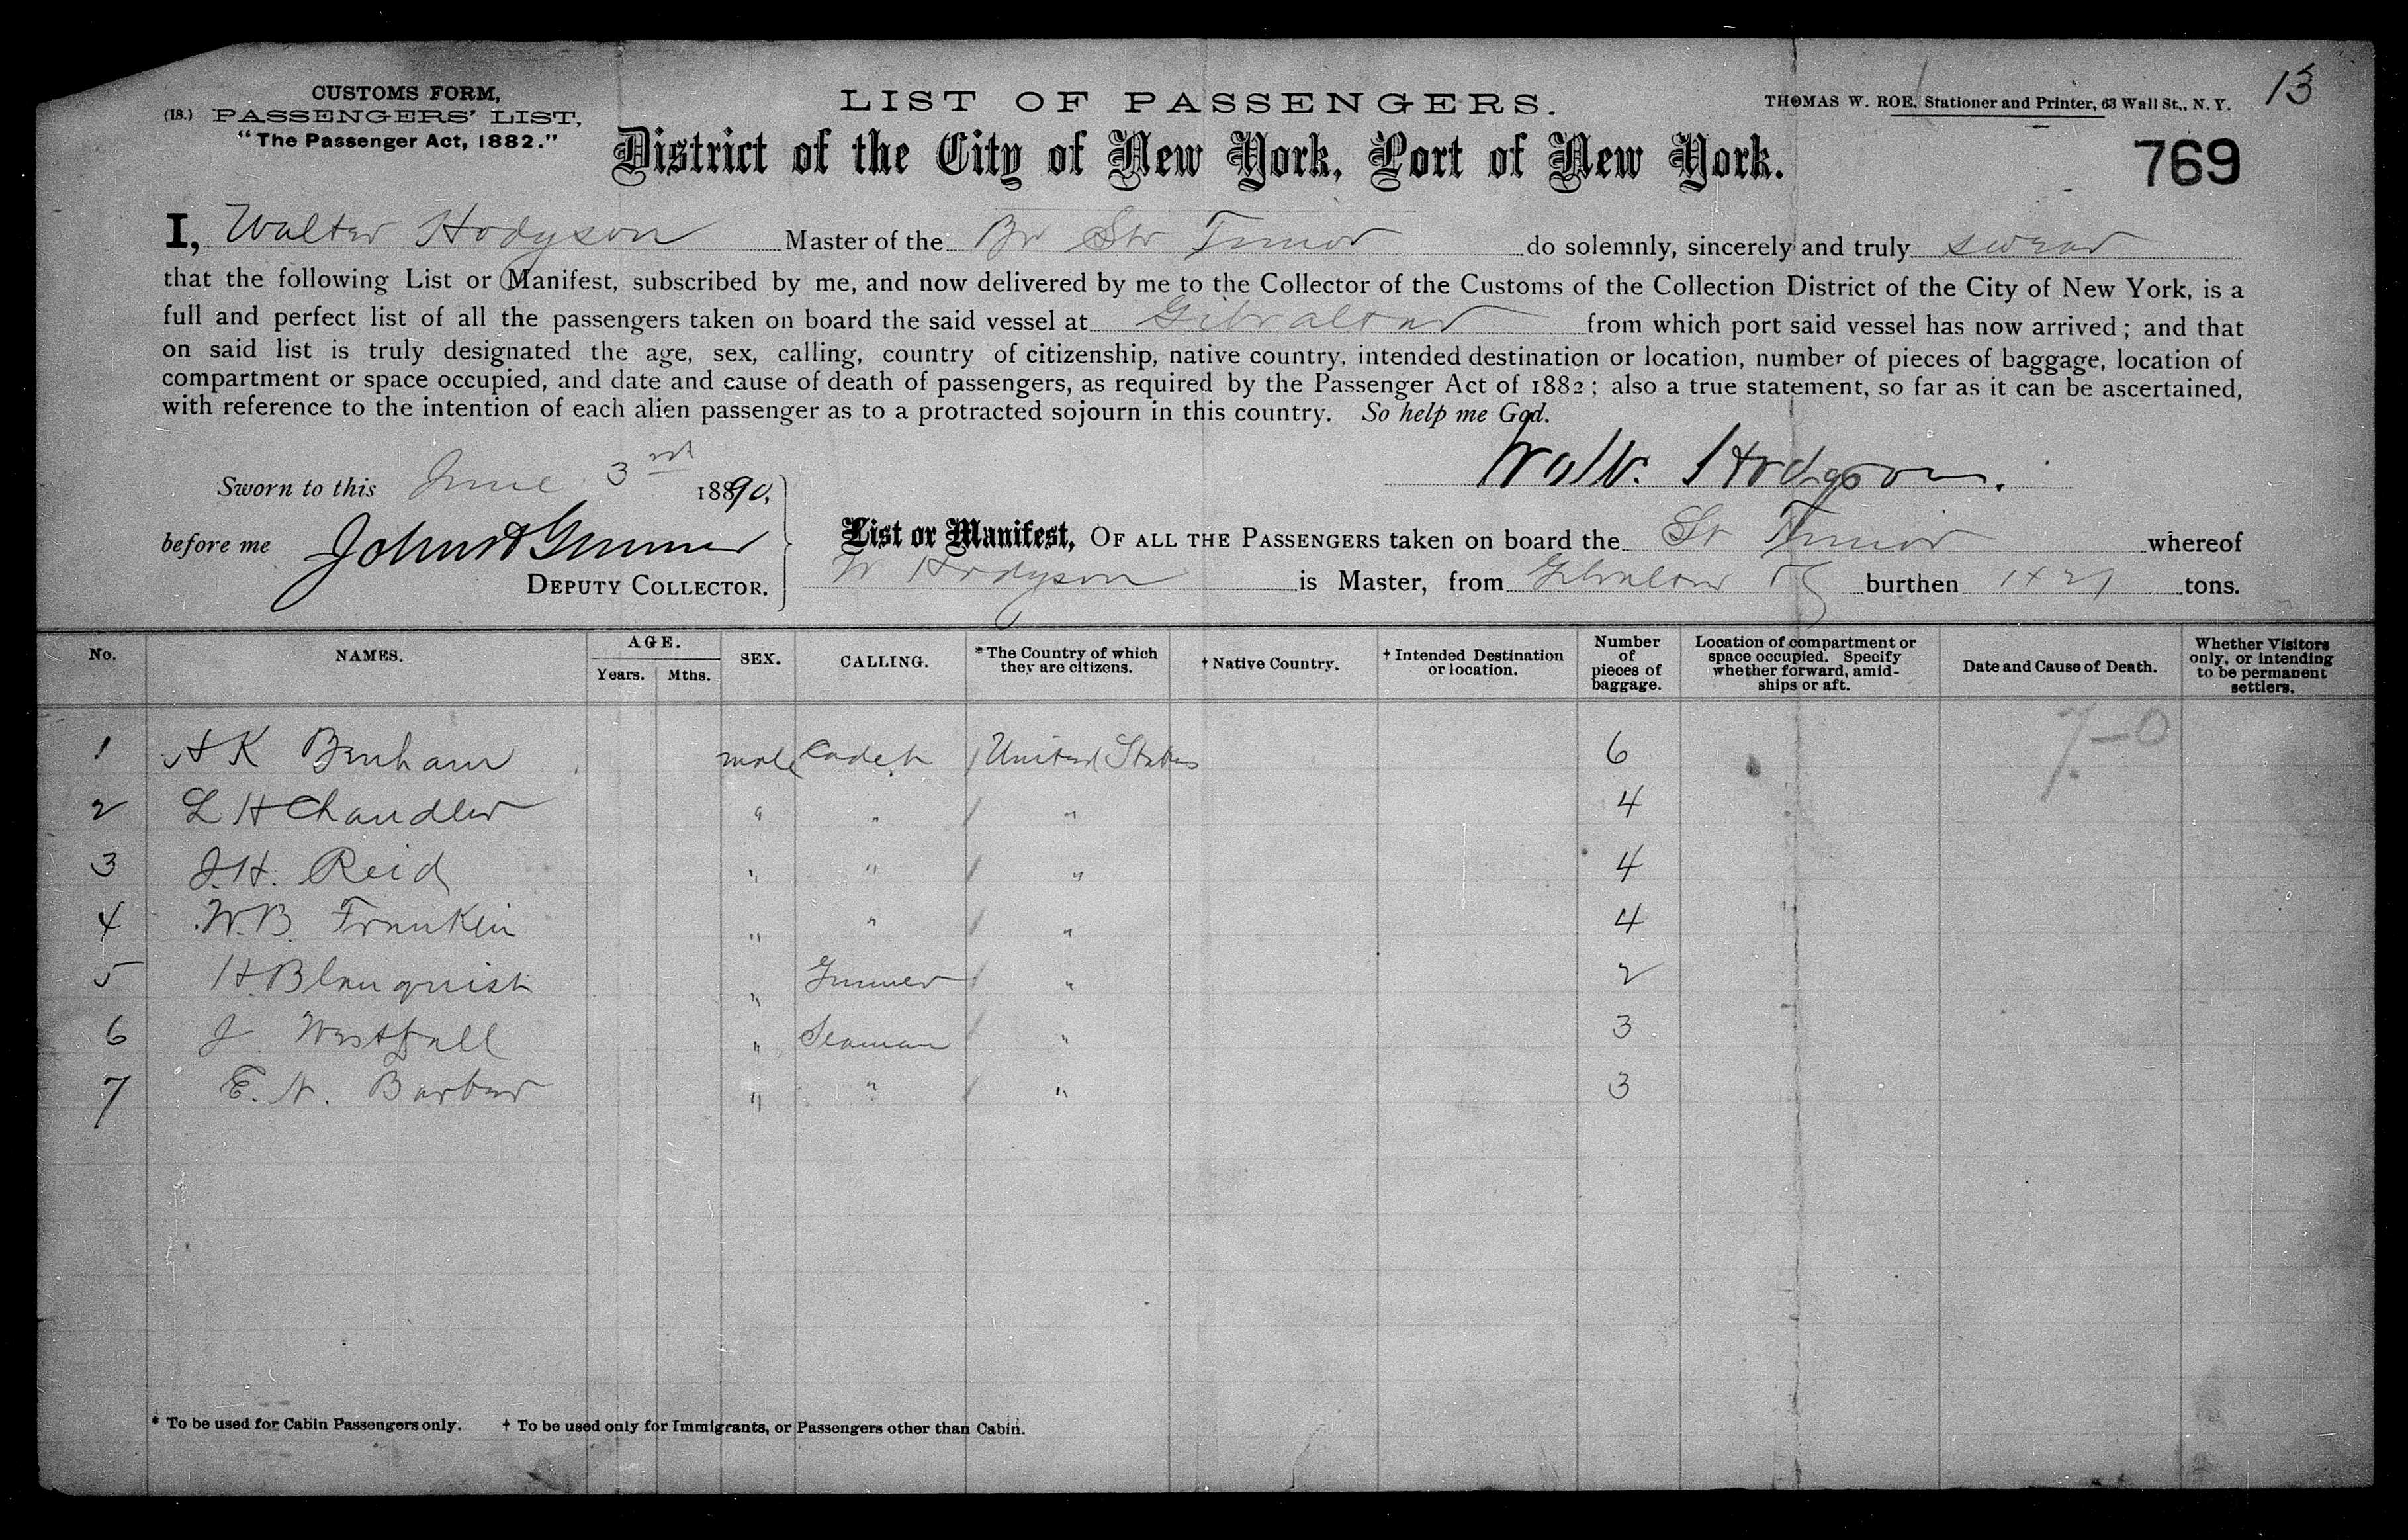 CUSTOMS FORM,
(18.) PASSENGERS' LIST,
"The Passenger Act, 1882."
LIST OF PASSENGERS.
THOMAS W. ROE. Stationer and Printer, 63 Wall St., N. Y.
13
District of the City of New York, Port of New York.
769
I, Walter Hodgson Master of the Br Str Timor do solemnly, sincerely and truly swear
that the following List or Manifest, subscribed by me, and now delivered by me to the Collector of the Customs of the Collection District of the City of New York, is a
full and perfect list of all the passengers taken on board the said vessel at Gibraltar from which port said vessel has now arrived; and that
on said list is truly designated the age, sex, calling, country of citizenship, native country, intended destination or location, number of pieces of baggage, location of
compartment or space occupied, and date and cause of death of passengers, as required by the Passenger Act of 1882; also a true statement, so far as it can be ascertained,
with reference to the intention of each alien passenger as to a protracted sojourn in this country. So help me God.
Walt. Hodgson.
Sworn to this June 3rd 1890.
before me
DEPUTY COLLECTOR.
List or Manifest, OF ALL THE PASSENGERS taken on board the Str Timor whereof
W Hodgson is Master, from Gibraltar burthen tons.
No. NAMES. AGE. Years. Mths. SEX. CALLING. * The Country of which they are citizens. † Native Country. † Intended Destination or location. Number of pieces of baggage. Location of compartment or space occupied. Specify whether forward, amidships or aft. Date and Cause of Death. Whether Visitors only, or intending to be permanent settlers.
7-0
1 H K Benham male Cadet United States 6
2 L H Chandler " " " 4
3 J.H. Reid " " " 4
4 W.B. Franklin " " " 4
5 H. Blanquist " Gunner " 2
6 J Westfall " Seaman " 3
7 E. N. Barber " " " 3
* To be used for Cabin Passengers only. † To be used only for Immigrants, or Passengers other than Cabin.